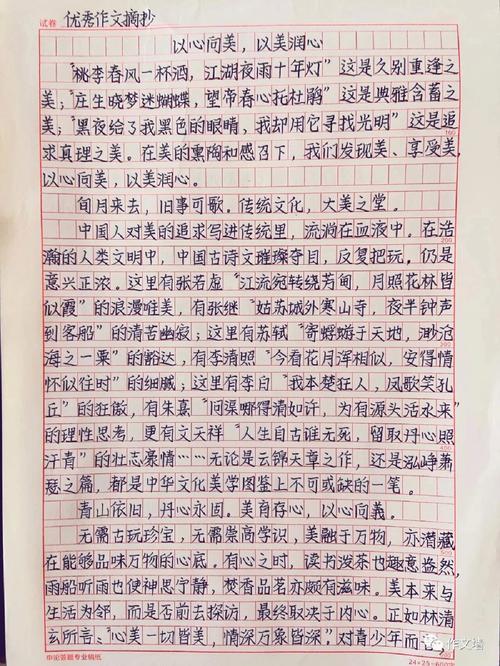 试卷 优秀作文摘抄
以心向美，以美润心
“桃李春风一杯酒，江湖夜雨十年灯”这是久别重逢之
美；“庄生晓梦迷蝴蝶，望帝春心托杜鹃”这是典雅含蓄之
美；“黑夜给了我黑色的眼睛，我却用它寻找光明”这是追
求真理之美。在美的熏陶和感召下，我们发现美、享受美，
以心向美，以美润心。
旬月来去，旧事可歌。传统文化，大美之堂。
中国人对美的追求写进传统里，流淌在血液中。在浩
瀚的人类文明中，中国古诗文璀璨夺目，反复把玩。仍是
意兴正浓。这里有张若虚“江流宛转绕芳甸，月照花林皆
似霰”的浪漫唯美，有张继“姑苏城外寒山寺，夜半钟声
到客船”的清苦幽寂；这里有苏轼“寄蜉蝣于天地，渺沧
海之一粟”的豁达，有李清照“今看花月浑相似，安得情
怀似往时”的细腻；这里有李白“我本楚狂人，凤歌笑孔
丘”的狂傲，有朱熹“问渠哪得清如许，为有源头活水来”
的理性思考，更有文天祥“人生自古谁无死，留取丹心照
汗青”的壮志豪情……无论是云锦天章之作，还是泓峥萧
瑟之篇，都是中华文化美学图鉴上不可或缺的一笔。
青山依旧，丹心永固。美育存心，以心向義。
无需古玩珍宝，无需崇高学识，美融于万物，亦潜藏
在能够品味万物的心底。有心之时，读书泼茶也趣意盎然，
雨船听雨也使神思宁静，焚香品茗亦颇有滋味。美本来与
生活为邻，而是否前去探访，最终取决于内心。正如林清
玄所言：“心美一切皆美，情深万象皆深。”对青少年而
申论答题专业稿纸
24×25=600
作文墙